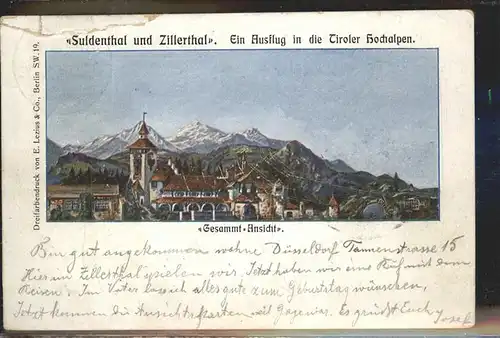 «Suldenthal und Zillerthal». Ein Ausflug in die Tiroler Hochalpen.
Dreifarbendruck von E. Lezius & Co., Berlin SW. 19.
«Gesammt-Ansicht».
Bin gut angekommen wohne Düsseldorf Tannenstrasse 15
Hier im Zillerthal spielen wir, Jetzt haben wir eine mit dem
Reisen. Im Vater lasse ich alles gute zum Geburtstag wünschen,
Jetzt kommen die Ansichtskarten weil Es grüßt Euch
Josef